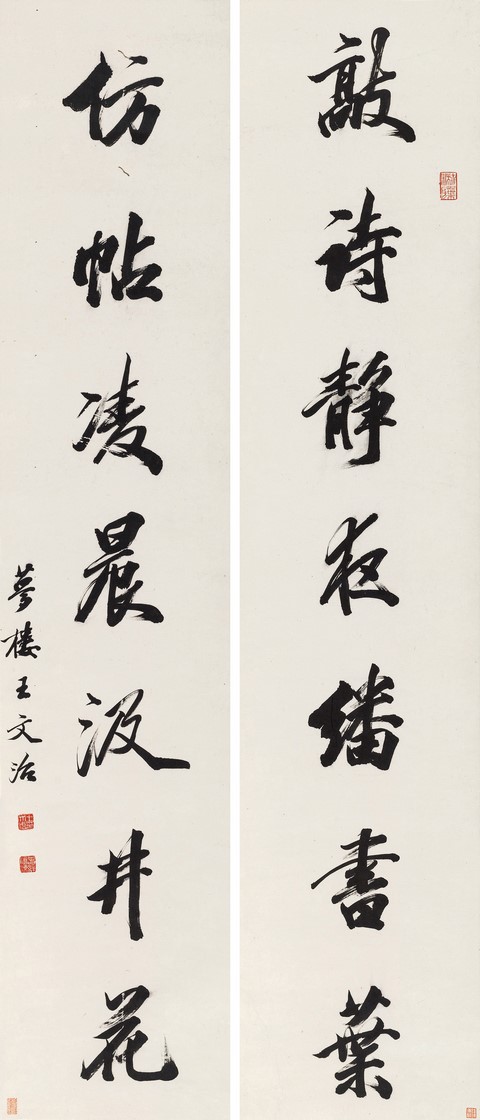 敲詩靜夜繙書葉
仿帖凌晨汲井花
夢樓王文治